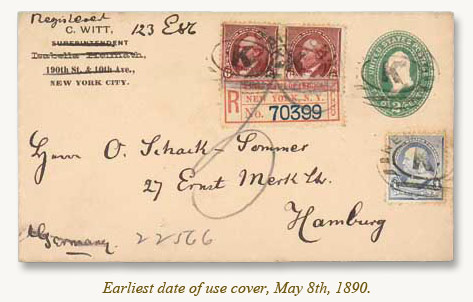 Registered
C. WITT,
123 E86
SUPERINTENDENT
190th St. & 10th Ave.,
NEW YORK CITY.
R
NEW YORK, N.Y.
No. 70399
K
K
K
K
UNITED STATES
2
Herrn O. Schack-Sommer
27 Ernst Merk
Hamburg
Germany.
22566
Earliest date of use cover, May 8th, 1890.